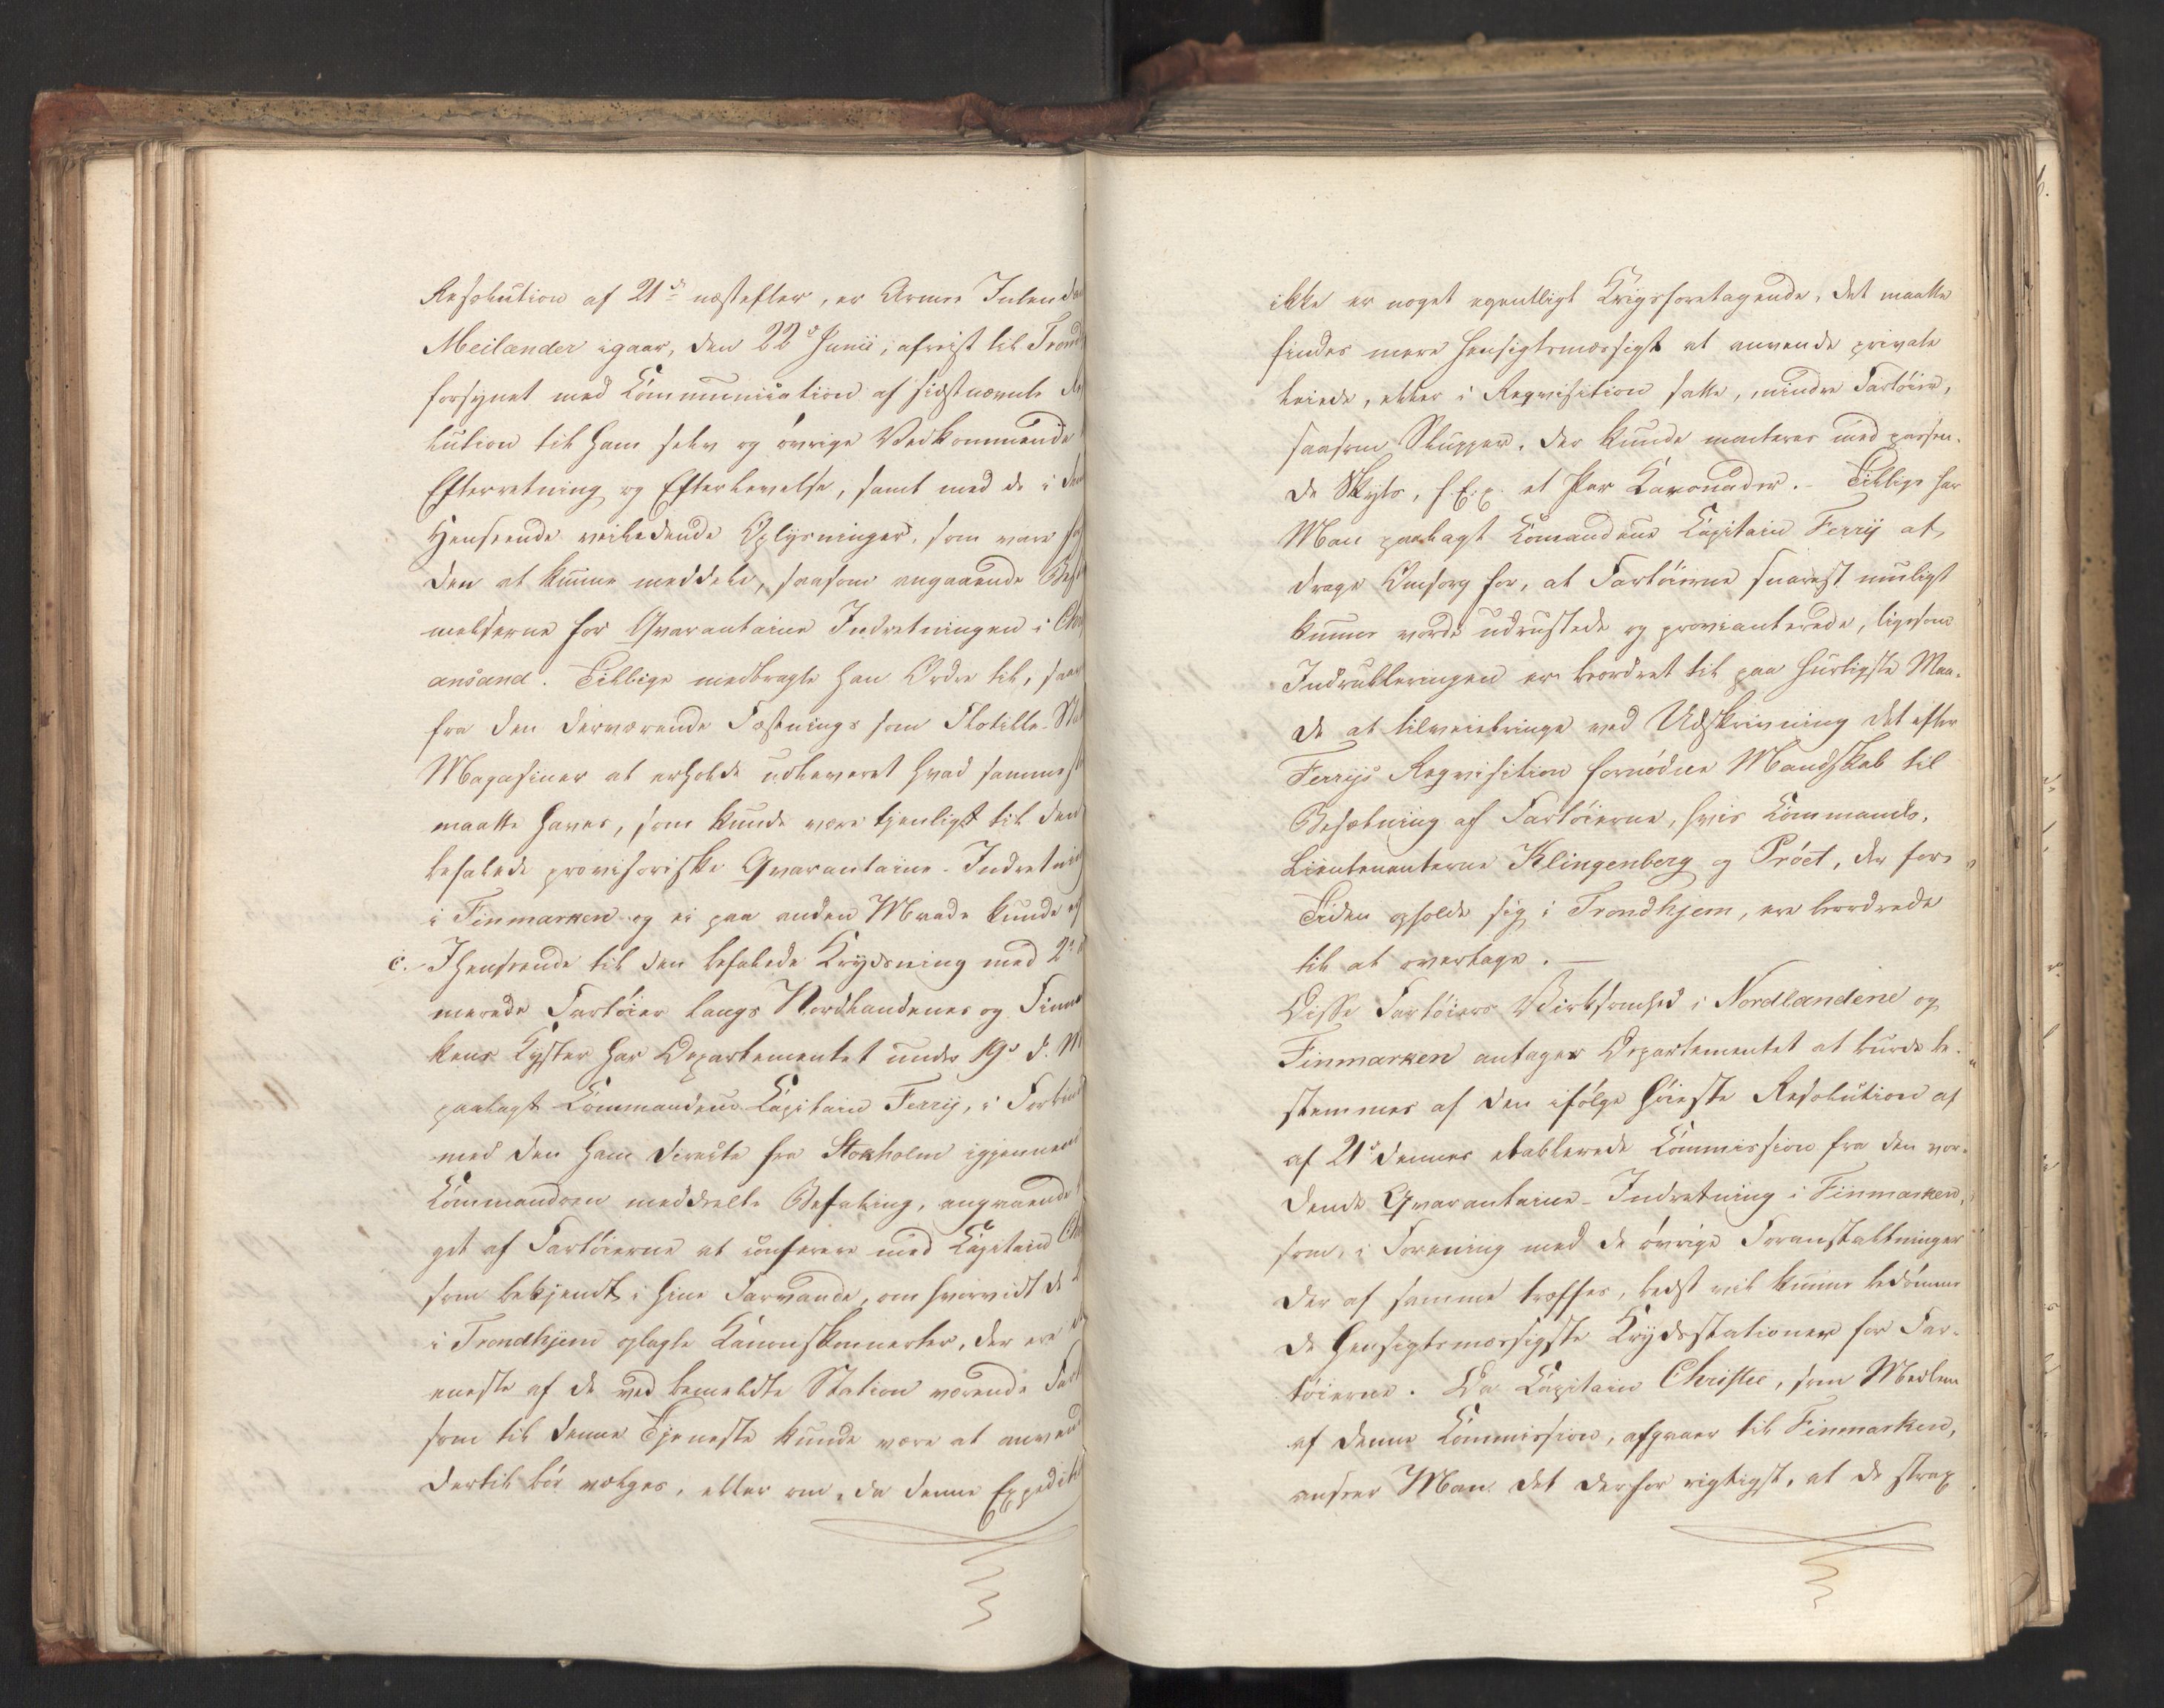 Resolution af 21de næstefter, er Armee Intenda
Meilænder igaar, den 22de Junii, afreist til Trond
forsynet med Communication af sidstnævnte
lution til ham selv og övrige Vedkommende
Efterretning og Efterlevelse, samt med de i den
Henseende veiledende Oplysninger, som vare
den at kunne meddele, saasom angaaende Best
melserne for Qvarantaine Indretningen i Chri
ansand. Tillige medbragte han Ordre til, saa
fra den derværende Fæstnings som Flotille-Sta
Magasiner at erholde udleveret hvad sammest
maatte haves, som kunde være tjenligt til den
befalede provisoriske Qvarantaine-Indretning
i Finmarken og ei paa anden Maade kunde
c. I Henseende til den befalede Krydsning med 2de
merede Fartöier langs Nordlandenes og Finma
kens Kyster har Departementet under 19de d. M
paalagt Commandeur Capitain Ferry, i Forbind
med den ham directe fra Stokholm igjennem
Commandoen meddeelte Befaling, angaaende
get af Fartöierne at conferere med Capitain Ch
som bekjendt i hine Farvande, om hvorvidt de
i Trondhjem oplagte Canonskonnerter, der ere
eneste af de ved bemeldte Station værende Fart
som til denne Tjeneste kunde være at anvend
dertil bör vælges, eller om, da denne Expediti
ikke er noget egentligt Krigsforetagende, det maatte
findes mere hensigtsmæssigt at anvende private
leiede, eller i Reqvisition satte, mindre Fartöier,
saasom Slupper, der kunde monteres med passen-
de Skyts, f. Ex. et Par Karonader. - Tillige har
Man paalagt Comandeur Capitain Ferry at
drage Omsorg for, at Fartöierne snarest muligt
kunne vorde udrustede og provianterede, ligesom
Indrulleringen er beordret til paa hurtigste Maa-
de at tilveiebringe ved Udskrivning det efter
Ferrys Reqvisition fornödne Mandskab til
Besætning af Fartöierne, hvis Commando,
Lieutenanterne Klingenberg og Pröet, der for
Tiden opholde sig i Trondhjem, ere beordrede
til at overtage. —
Disse Fartöiers Virksomhed i Nordlandene og
Finmarken antager Departementet at burde be-
stemmes af den ifölge Höieste Resolution af
af 21de dennes etablerede Commission fra den vor-
dende Qvarantaine-Indretning i Finmarken,
som, i Forening med de övrige Foranstaltninger
der af samme træffes, bedst vil kunne bedömme
de hensigtsmæssigste Krydsstationer for Far-
töierne. Da Capitain Christie, som Medlem
af denne Commission, afgaaer til Finmarken,
anseer Man det derfor rigtigst, at de strax